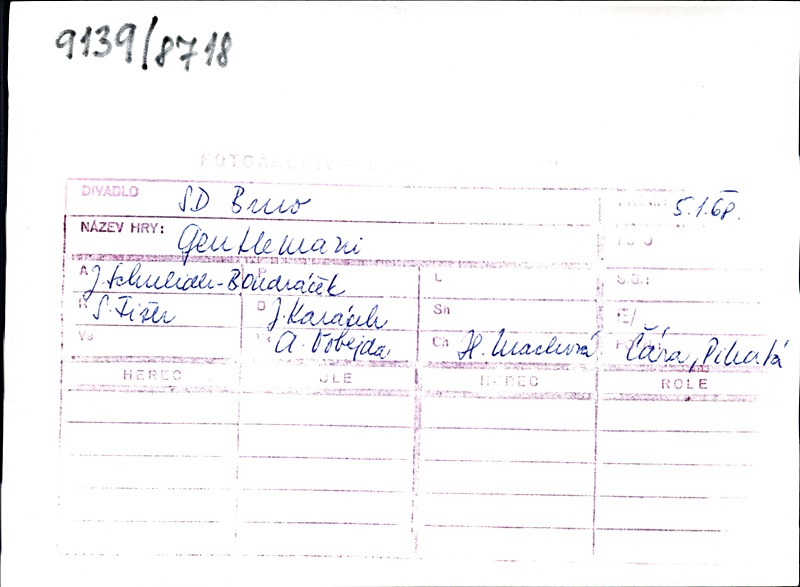 9139/8718
DIVADLO SD Brno 5.1.68.
NÁZEV HRY: Gentlemani
A J. Schneider-Bondráček L
R S. Fišer D J. Karásek Sh
Vs A. Vobejda Ch H. Machová Čára, Pikatá
HEREC HEREC ROLE